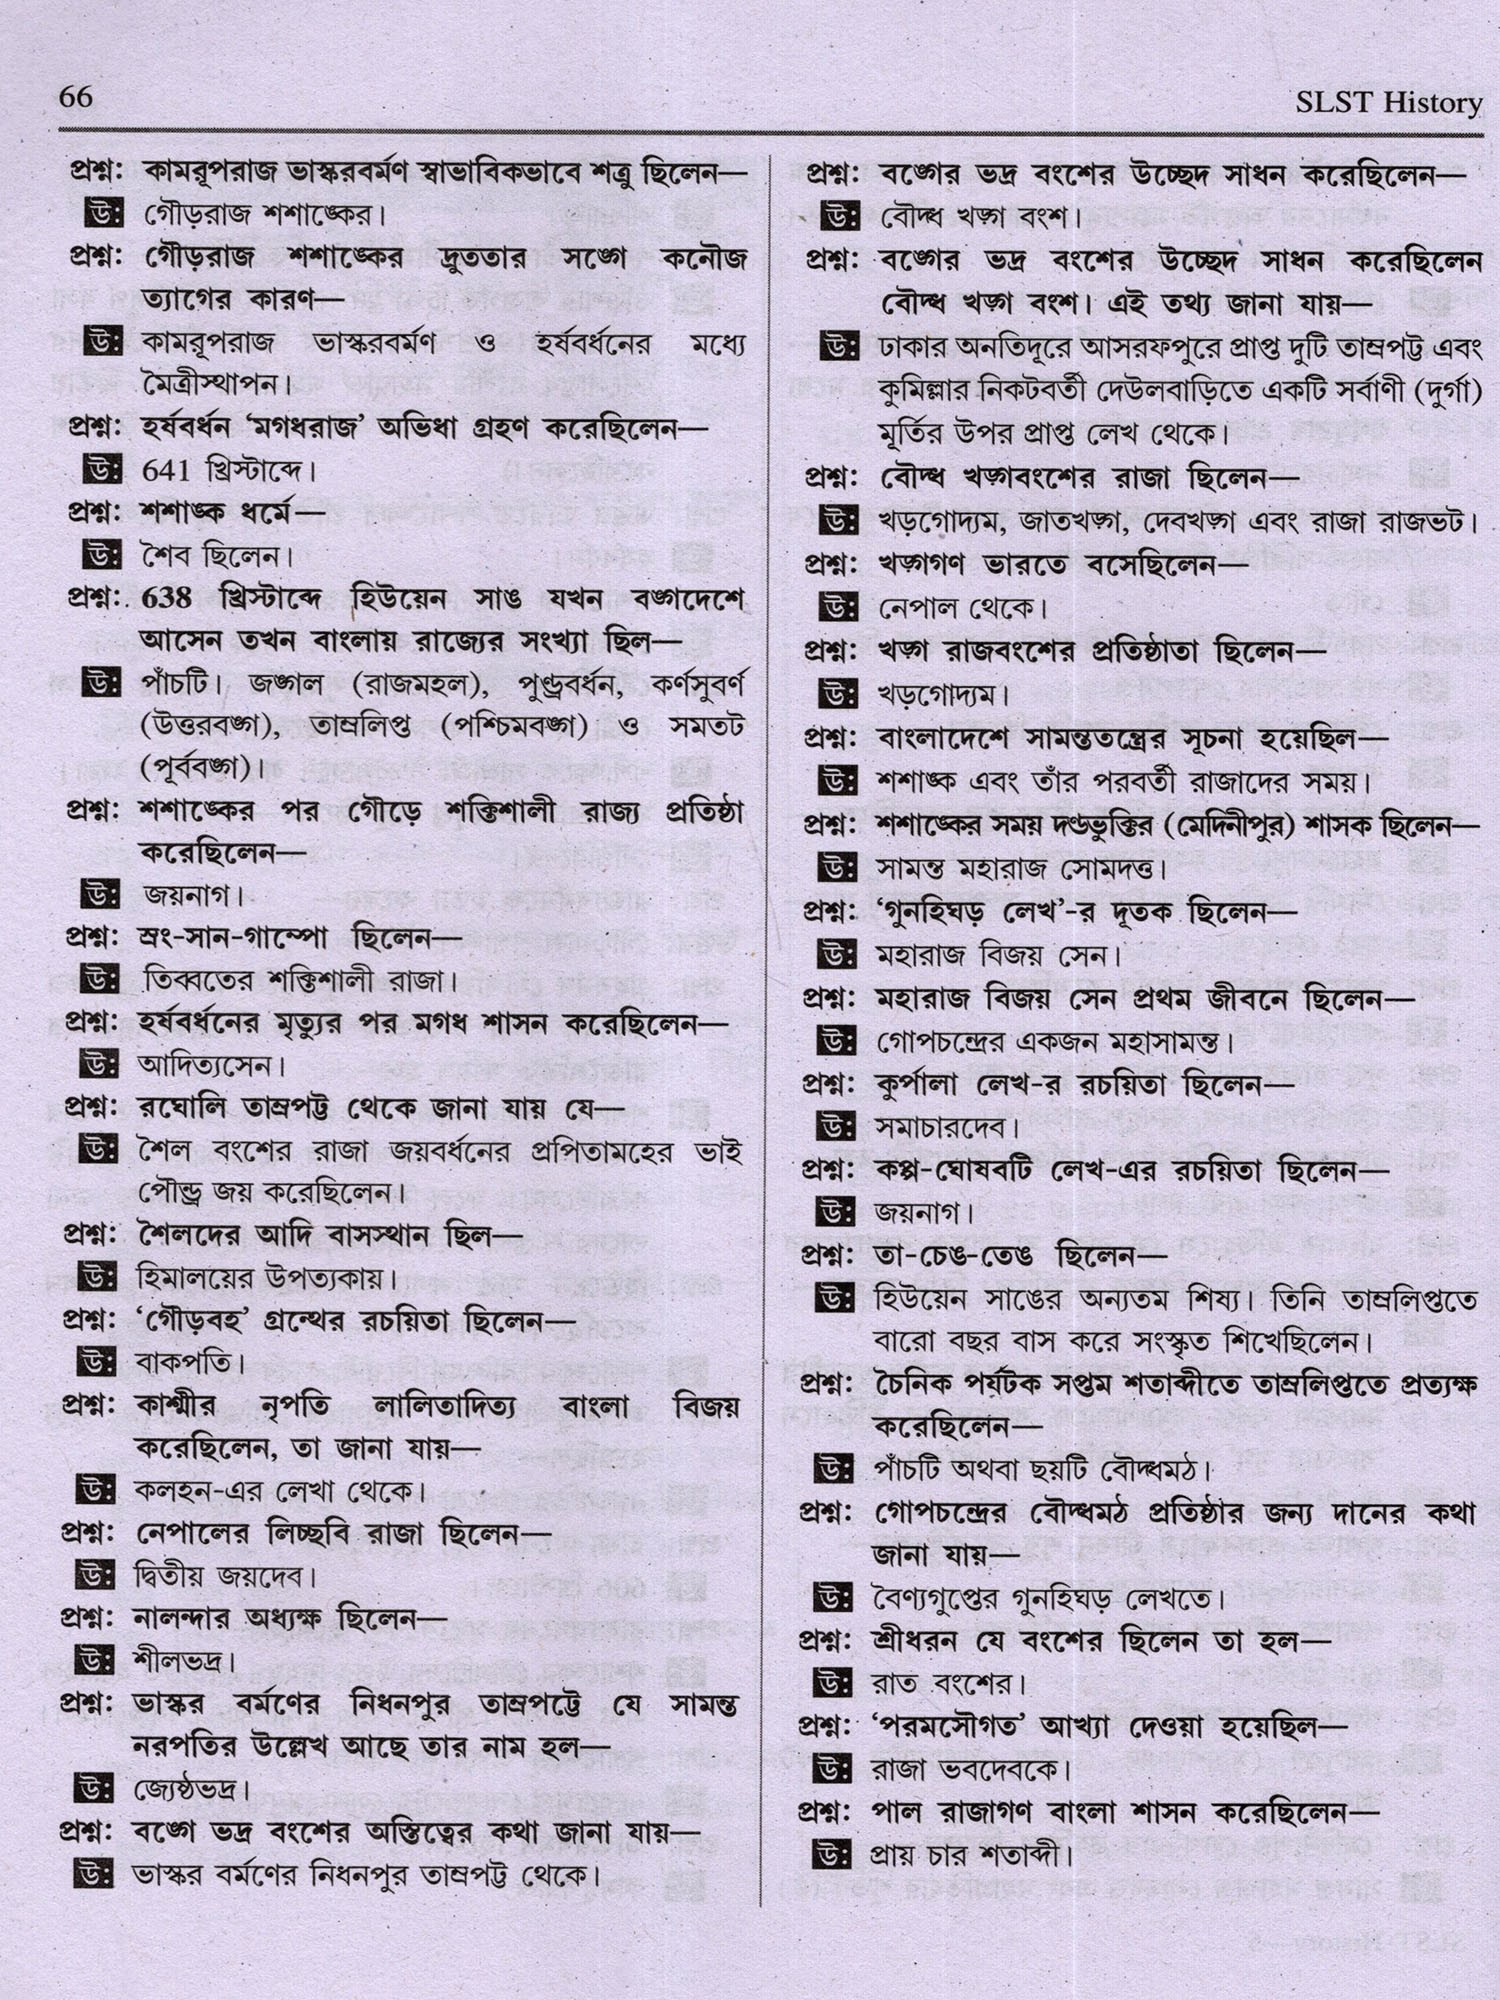 66
SLST History
প্রশ্ন: কামরূপরাজ ভাস্করবর্মণ স্বাভাবিকভাবে শত্রু ছিলেন—
উ: গৌড়রাজ শশাঙ্কের।
প্রশ্ন: গৌড়রাজ শশাঙ্কের দ্রুততার সঙ্গে কনৌজ
ত্যাগের কারণ—
উ: কামরূপরাজ ভাস্করবর্মণ ও হর্ষবর্ধনের মধ্যে
মৈত্রীস্থাপন।
প্রশ্ন: হর্ষবর্ধন ‘মগধরাজ’ অভিধা গ্রহণ করেছিলেন—
উ: 641 খ্রিস্টাব্দে।
প্রশ্ন: শশাঙ্ক ধর্মে—
উ: শৈব ছিলেন।
প্রশ্ন: 638 খ্রিস্টাব্দে হিউয়েন সাঙ যখন বঙ্গদেশে
আসেন তখন বাংলায় রাজ্যের সংখ্যা ছিল—
উ: পাঁচটি। জঙ্গল (রাজমহল), পুণ্ড্রবর্ধন, কর্ণসুবর্ণ
(উত্তরবঙ্গ), তাম্রলিপ্ত (পশ্চিমবঙ্গ) ও সমতট
(পূর্ববঙ্গ)।
প্রশ্ন: শশাঙ্কের পর গৌড়ে শক্তিশালী রাজ্য প্রতিষ্ঠা
করেছিলেন—
উ: জয়নাগ।
প্রশ্ন: স্রং-সান-গাম্পো ছিলেন—
উ: তিব্বতের শক্তিশালী রাজা।
প্রশ্ন: হর্ষবর্ধনের মৃত্যুর পর মগধ শাসন করেছিলেন—
উ: আদিত্যসেন।
প্রশ্ন: রঘোলি তাম্রপট্ট থেকে জানা যায় যে—
উ: শৈল বংশের রাজা জয়বর্ধনের প্রপিতামহের ভাই
পৌন্ড্র জয় করেছিলেন।
প্রশ্ন: শৈলদের আদি বাসস্থান ছিল—
উ: হিমালয়ের উপত্যকায়।
প্রশ্ন: ‘গৌড়বহ’ গ্রন্থের রচয়িতা ছিলেন—
উ: বাকপতি।
প্রশ্ন: কাশ্মীর নৃপতি লালিতাদিত্য বাংলা বিজয়
করেছিলেন, তা জানা যায়—
উ: কলহন-এর লেখা থেকে।
প্রশ্ন: নেপালের লিচ্ছবি রাজা ছিলেন—
উ: দ্বিতীয় জয়দেব।
প্রশ্ন: নালন্দার অধ্যক্ষ ছিলেন—
উ: শীলভদ্র।
প্রশ্ন: ভাস্কর বর্মণের নিধনপুর তাম্রপট্টে যে সামন্ত
নরপতির উল্লেখ আছে তার নাম হল—
উ: জ্যেষ্ঠভদ্র।
প্রশ্ন: বঙ্গে ভদ্র বংশের অস্তিত্বের কথা জানা যায়—
উ: ভাস্কর বর্মণের নিধনপুর তাম্রপট্ট থেকে।
প্রশ্ন: বঙ্গের ভদ্র বংশের উচ্ছেদ সাধন করেছিলেন—
উ: বৌদ্ধ খড়্গ বংশ।
প্রশ্ন: বঙ্গের ভদ্র বংশের উচ্ছেদ সাধন করেছিলেন
বৌদ্ধ খড়্গ বংশ। এই তথ্য জানা যায়—
উ: ঢাকার অনতিদূরে আসরফপুরে প্রাপ্ত দুটি তাম্রপট্ট এবং
কুমিল্লার নিকটবর্তী দেউলবাড়িতে একটি সর্বাণী (দুর্গা)
মূর্তির উপর প্রাপ্ত লেখ থেকে।
প্রশ্ন: বৌদ্ধ খড়্গবংশের রাজা ছিলেন—
উ: খড়গোদ্যম, জাতখড়্গ, দেবখড়্গ এবং রাজা রাজভট।
প্রশ্ন: খড়্গগণ ভারতে বসেছিলেন—
উ: নেপাল থেকে।
প্রশ্ন: খড়্গ রাজবংশের প্রতিষ্ঠাতা ছিলেন—
উ: খড়গোদ্যম।
প্রশ্ন: বাংলাদেশে সামন্ততন্ত্রের সূচনা হয়েছিল—
উ: শশাঙ্ক এবং তাঁর পরবর্তী রাজাদের সময়।
প্রশ্ন: শশাঙ্কের সময় দণ্ডভুক্তির (মেদিনীপুর) শাসক ছিলেন—
উ: সামন্ত মহারাজ সোমদত্ত।
প্রশ্ন: ‘গুনহিঘড় লেখ’-র দূতক ছিলেন—
উ: মহারাজ বিজয় সেন।
প্রশ্ন: মহারাজ বিজয় সেন প্রথম জীবনে ছিলেন—
উ: গোপচন্দ্রের একজন মহাসামন্ত।
প্রশ্ন: কুর্পালা লেখ-র রচয়িতা ছিলেন—
উ: সমাচারদেব।
প্রশ্ন: কপ্প-ঘোষবটি লেখ-এর রচয়িতা ছিলেন—
উ: জয়নাগ।
প্রশ্ন: তা-চেঙ-তেঙ ছিলেন—
উ: হিউয়েন সাঙের অন্যতম শিষ্য। তিনি তাম্রলিপ্ততে
বারো বছর বাস করে সংস্কৃত শিখেছিলেন।
প্রশ্ন: চৈনিক পর্যটক সপ্তম শতাব্দীতে তাম্রলিপ্ততে প্রত্যক্ষ
করেছিলেন—
উ: পাঁচটি অথবা ছয়টি বৌদ্ধমঠ।
প্রশ্ন: গোপচন্দ্রের বৌদ্ধমঠ প্রতিষ্ঠার জন্য দানের কথা
জানা যায়—
উ: বৈণ্যগুপ্তের গুনহিঘড় লেখতে।
প্রশ্ন: শ্রীধরন যে বংশের ছিলেন তা হল—
উ: রাত বংশের।
প্রশ্ন: ‘পরমসৌগত’ আখ্যা দেওয়া হয়েছিল—
উ: রাজা ভবদেবকে।
প্রশ্ন: পাল রাজাগণ বাংলা শাসন করেছিলেন—
উ: প্রায় চার শতাব্দী।